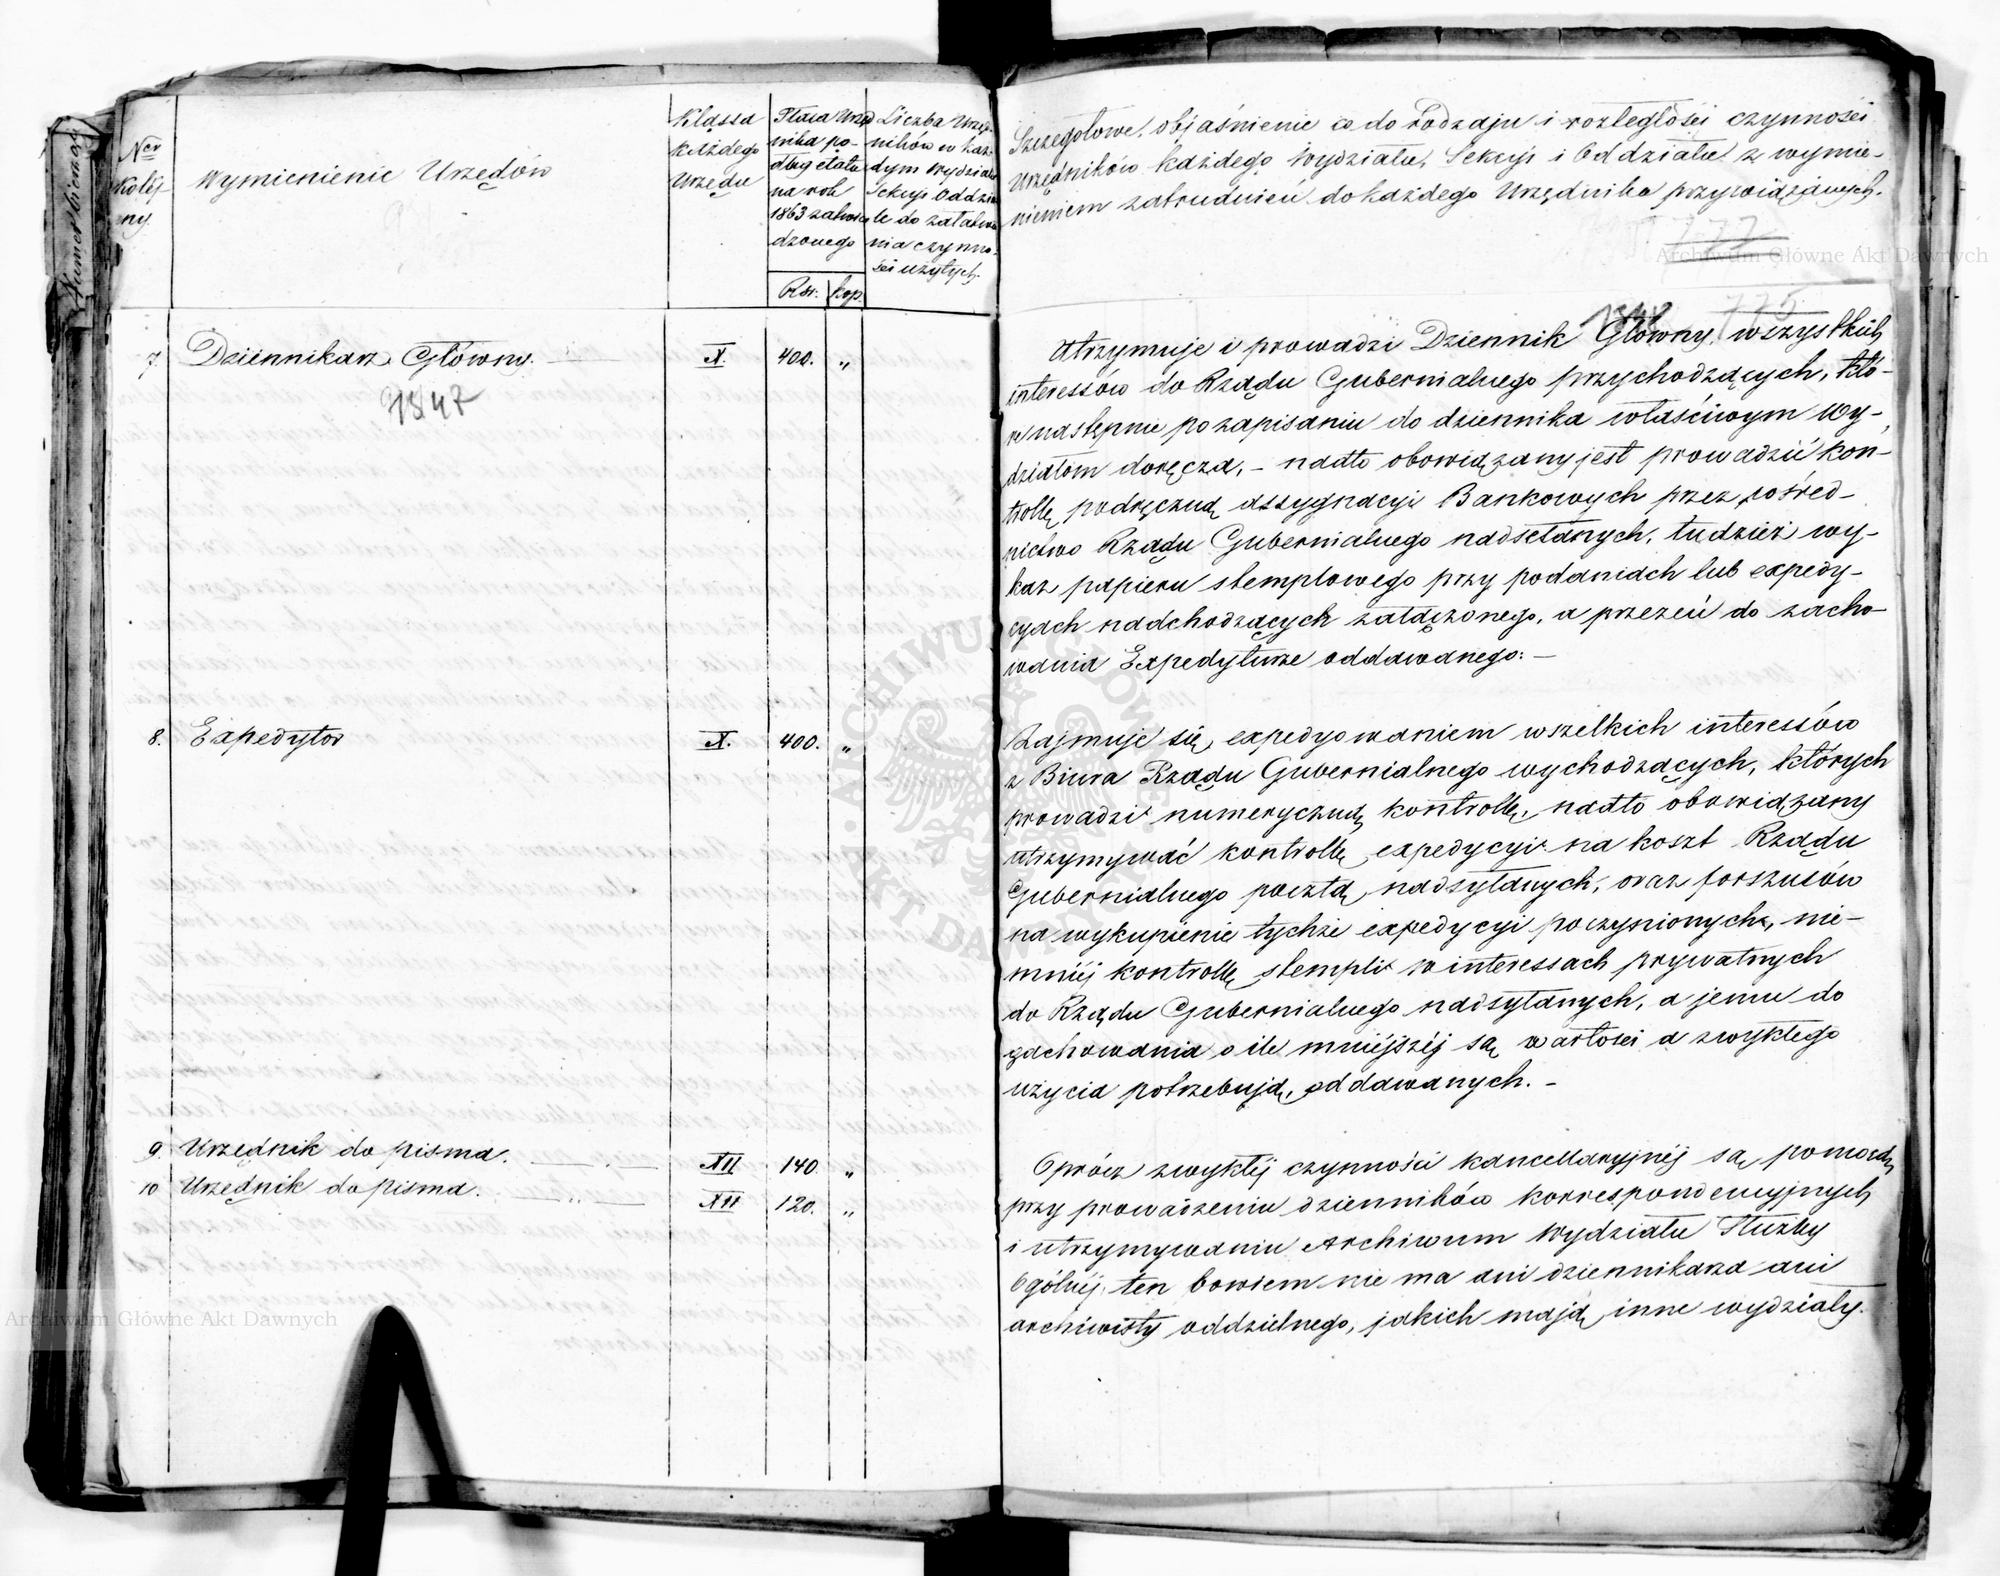 Numer bieżący
Ner
Kolej-
ny.
Wymienienie Urzędów
Klassa
każdego
Urzędu
Płaca Urzęd
nika po-
dług etatu
na rok
1863 zatwier
dzonego
Rsr. kop.
Liczba Urzęd-
ników w każ-
dym Wydziale
Sekcyi Oddzia
le do załatwia
nia czynno-
ści użytych.
7. Dziennikarz Główny. X. 400. „
1847
8. Expedytor X. 400. „
9. Urzędnik do pisma. XII 140. „
10 Urzędnik do pisma. XII 120. „
Szczegółowe objaśnienie co do rodzaju i rozległości czynności
Urzędników każdego Wydziału, Sekcyi i Oddziału z wymie-
nieniem zatrudnień do każdego Urzędnika przywiązanych.
777
1848 775
Utrzymuje i prowadzi Dziennik Główny wszystkich
interessów do Rządu Gubernialnego przychodzących, któ-
re następnie po zapisaniu do dziennika właściwym Wy-
działom doręcza, – nadto obowiązany jest prowadzić kon-
trollę podręczną assygnacyi Bankowych przez pośred-
nictwo Rządu Gubernialnego nadsełanych, tudzież wy-
kaz papieru stemplowego przy podaniach lub expedy-
cyach nadchodzących załączonego, a przezeń do zacho-
wania Expedyturze oddawanego: –
Zajmuje się expedyowaniem wszelkich interessów
z Biura Rządu Gubernialnego wychodzących, których
prowadzi numeryczną kontrollę, nadto obowiązany
utrzymywać kontrollę expedycyi na koszt Rządu
Gubernialnego pocztą nadsyłanych, oraz forszusów
na wykupienie tychże expedycyi poczynionych, nie-
mniéj kontrollę stempli w interessach prywatnych
do Rządu Gubernialnego nadsyłanych, a jemu do
zachowania o ile mniéjszéj są wartości a zwykłego
użycia potrzebują, oddawanych. –
Oprócz zwykłéj czynności kancellaryjnéj są pomocą
przy prowadzeniu dzienników korrespondencyjnych
i utrzymywaniu Archiwum Wydziału Służby
Ogólnéj, ten bowiem nie ma ani dziennikarza ani
archiwisty oddzielnego, jakich mają inne wydziały.
Archiwum Główne Akt Dawnych
Archiwum Główne Akt Dawnych